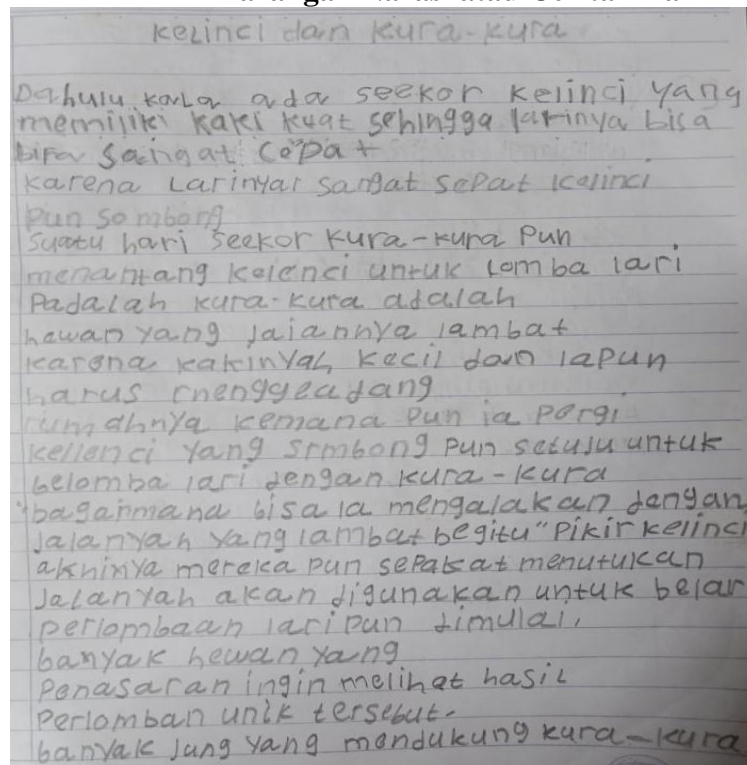 kelinci dan kura-kura
Dahulu kala ada seekor kelinci yang
memiliki kaki kuat sehingga larinya bisa
bifa saingat cepat
karena Larinyar sangat sepat kelinci
pun sombong
suatu hari seekor kura-kura pun
menantang kelenci untuk lomba lari
Padalah kura-kura adalah
hewan yang jalannya lambat
karena kakinyah kecil dan iapun
harus
rumahnya kemana pun ia pergi
kellenci yang sembong pun setuju untuk
belomba lari dengan kura-kura
"bagaimana bisa ia mengalakan dengan
Jalanyah yang lambat begitu" Pikir kelinci
akhinya mereka pun sepakat menutukan
Jalanyah akan digunakan untuk belar
perlombaan lari pun dimulai,
banyak hewan yang
Penasaran ingin melihat hasil
Perlomban unik tersebut.
banyak jung yang mendukung kura-kura